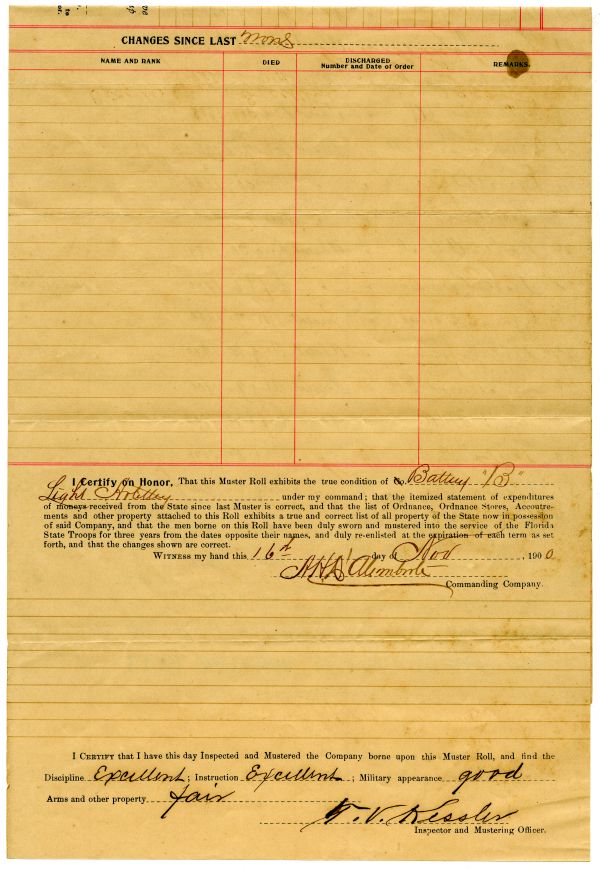 CHANGES SINCE LAST
NAME AND RANK DIED DISCHARGED Number and Date of Order REMARKS.
I Certify on Honor, That this Muster Roll exhibits the true condition of Co. Battery "B"
Light Artillery under my command; that the itemized statement of expenditures
of moneys received from the State since last Muster is correct, and that the list of Ordnance, Ordnance Stores, Accoutre-
ments and other property attached to this Roll exhibits a true and correct list of all property of the State now in possession
of said Company, and that the men borne on this Roll have been duly sworn and mustered into the service of the Florida
State Troops for three years from the dates opposite their names, and duly re-enlisted at the expiration of each term as set
forth, and that the changes shown are correct.
WITNESS my hand this 16th day of Nov , 1900
A H D'Alemberte
Commanding Company.
I CERTIFY that I have this day Inspected and Mustered the Company borne upon this Muster Roll, and find the
Discipline Excellent; Instruction Excellent; Military appearance good
Arms and other property fair
Kessler
Inspector and Mustering Officer.